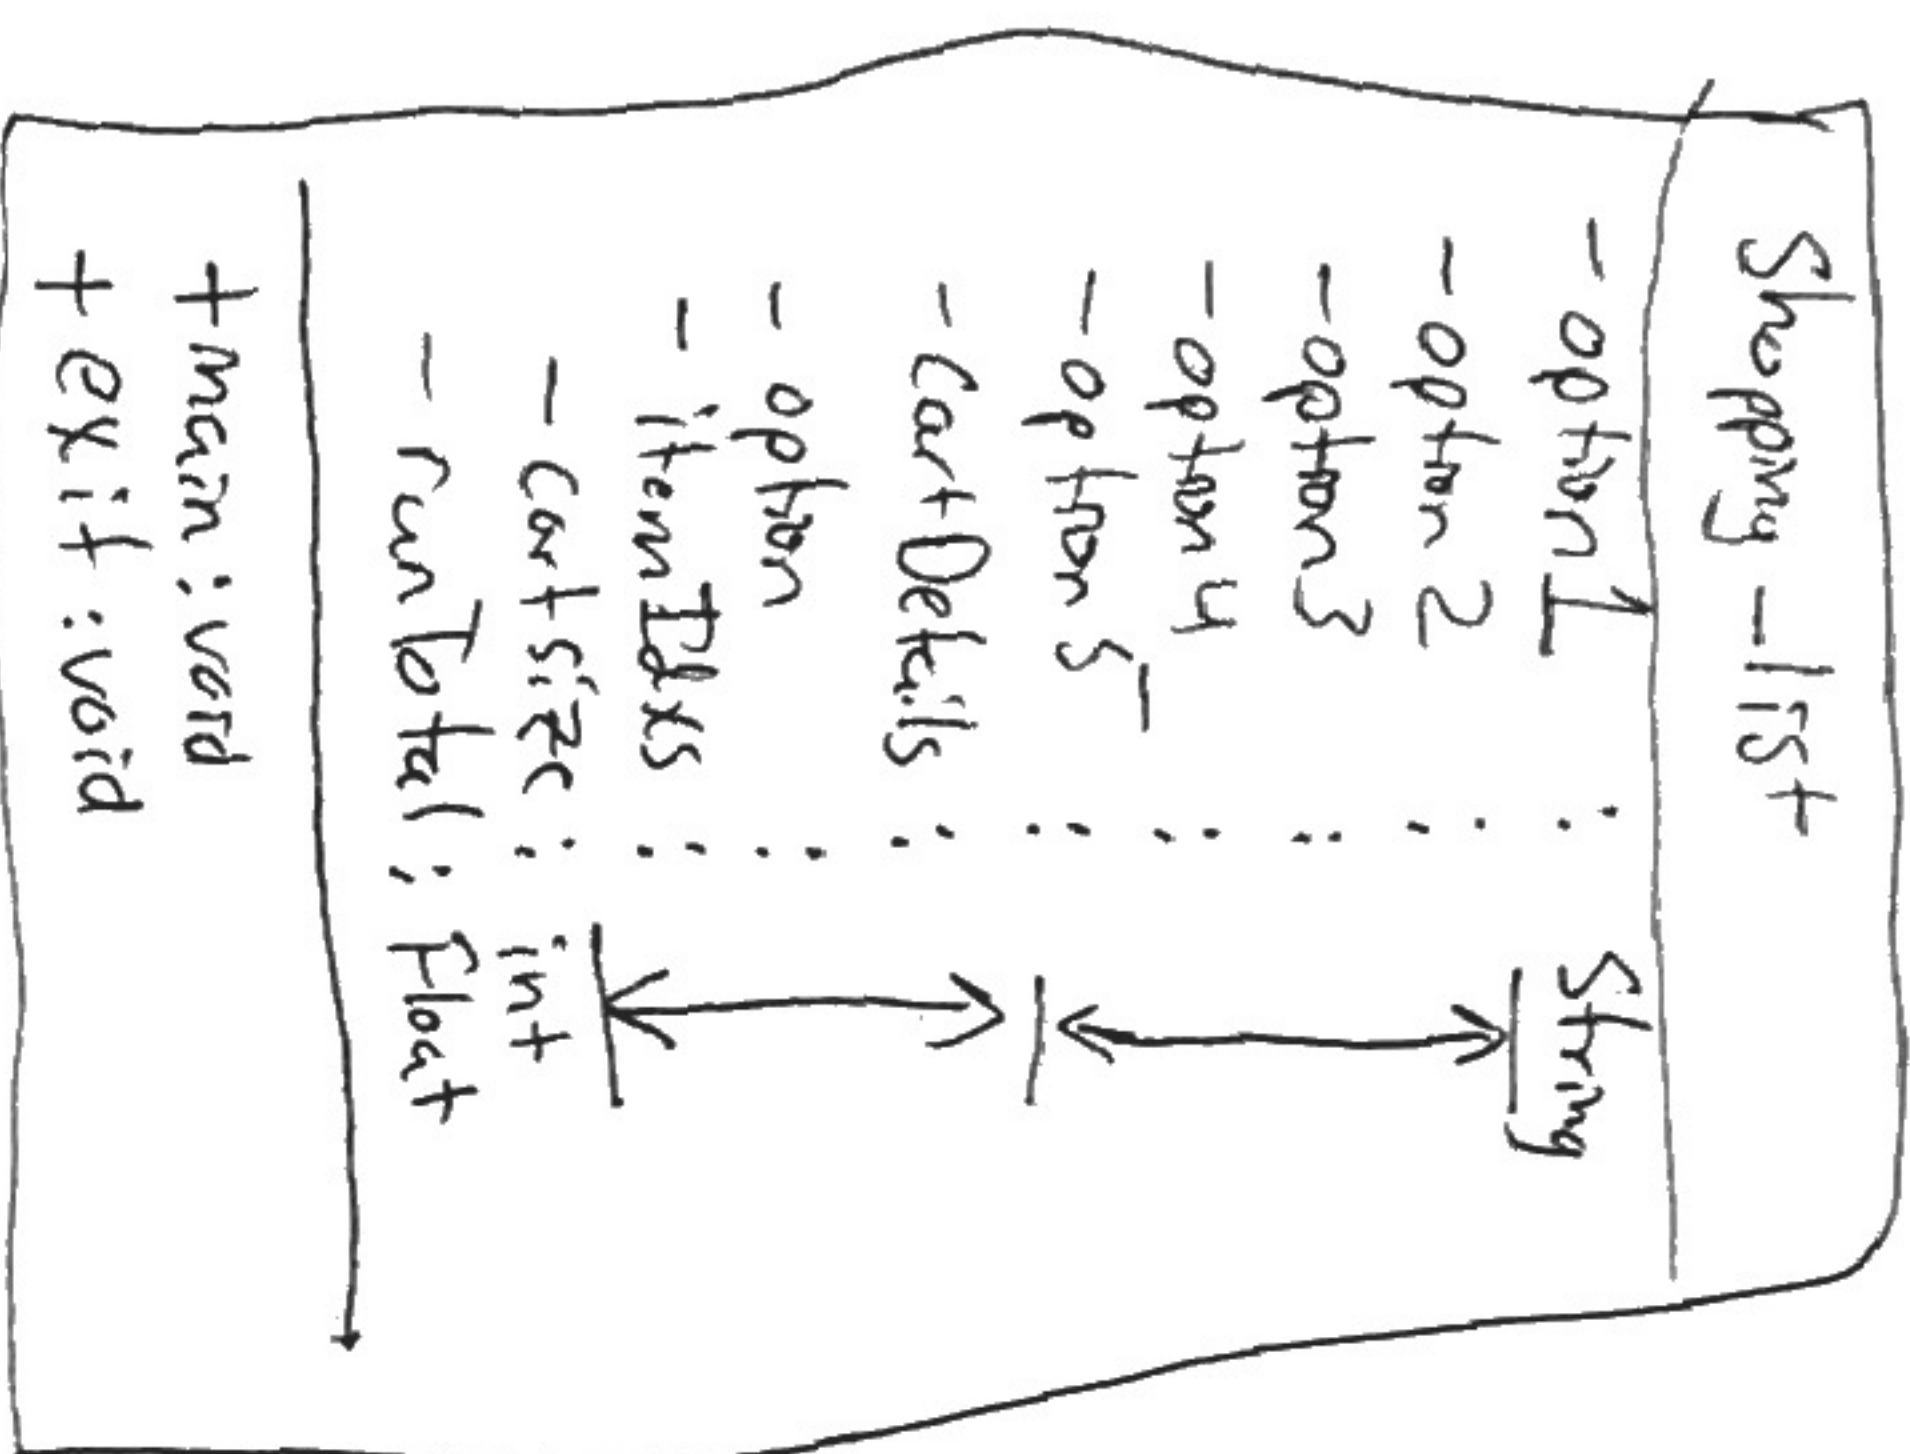 Shopping - list
- option 1 : String
- option 2 :
- option 3 :
- option 4 :
- option 5 :
- CartDetails :
- option :
- itemIdxs :
- Cartsize : int
- runTotal : float
+ main : void
+ exit : void